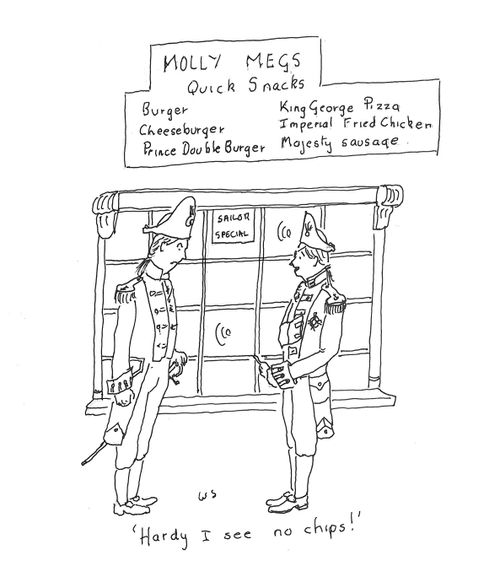 MOLLY MEGS
Quick Snacks
Burger
Cheeseburger
Prince Double Burger
King George Pizza
Imperial Fried Chicken
Majesty sausage.
SAILOR
SPECIAL
WS
'Hardy I see no chips!'